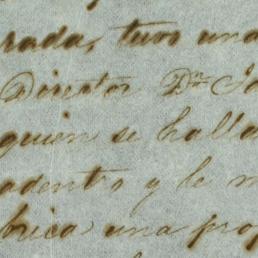 rada, tuvo una
Director Dn. Ja
quien se halla
adentro y le m
brica una prop